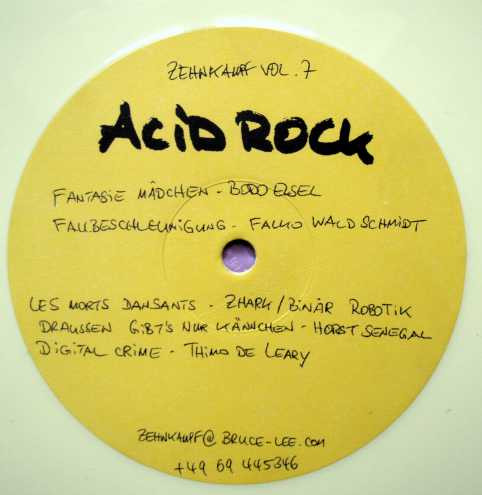 ZEHNKAMPF VOL. 7
ACiD ROCK
FANTASIE MÄDCHEN - BODO ELSEL
FALLBESCHLEUNIGUNG - FALKO WALDSCHMIDT
LES MORTS DANSANTS - ZHARK/BiNÄR ROBOTIK
DRAUSSEN GiBT'S NUR KÄNNCHEN - HORST SENEGAL
DiGiTAL CRIME - THiMO DE LEARY
ZEHNKAMPF@BRUCE-LEE.COM
+49 69 445346